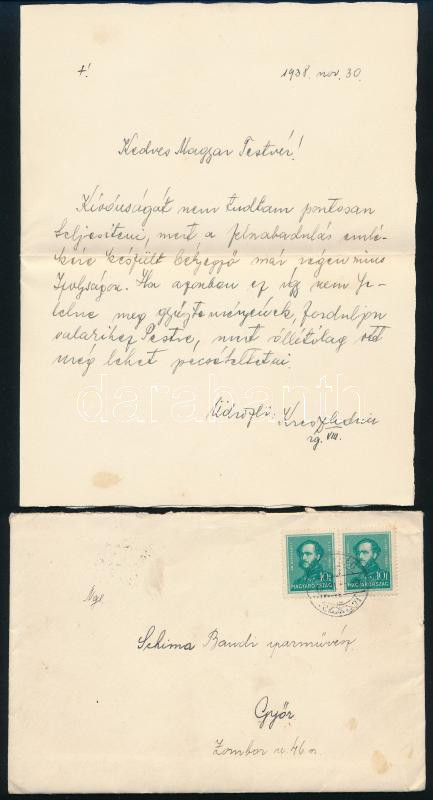 +!
1938. nov. 30.
Kedves Magyar Testvér!
Kívánságát nem tudtam pontosan
teljesíteni, mert a felszabadulás emlé-
kére készült bélyegző már régen nincs
Ipolyságon. Ha azonban ez így nem fe-
lelne meg gyűjteményének, forduljon
valakihez Pestre, mert állítólag ott
még lehet pecsételtetni.
Üdvözli:
VIII.
darabanth
10f 10f
MAGYARORSZÁG MAGYARORSZÁG
Ngs.
Schima Bandi iparművész
Győr
Zombor u 46 sz.